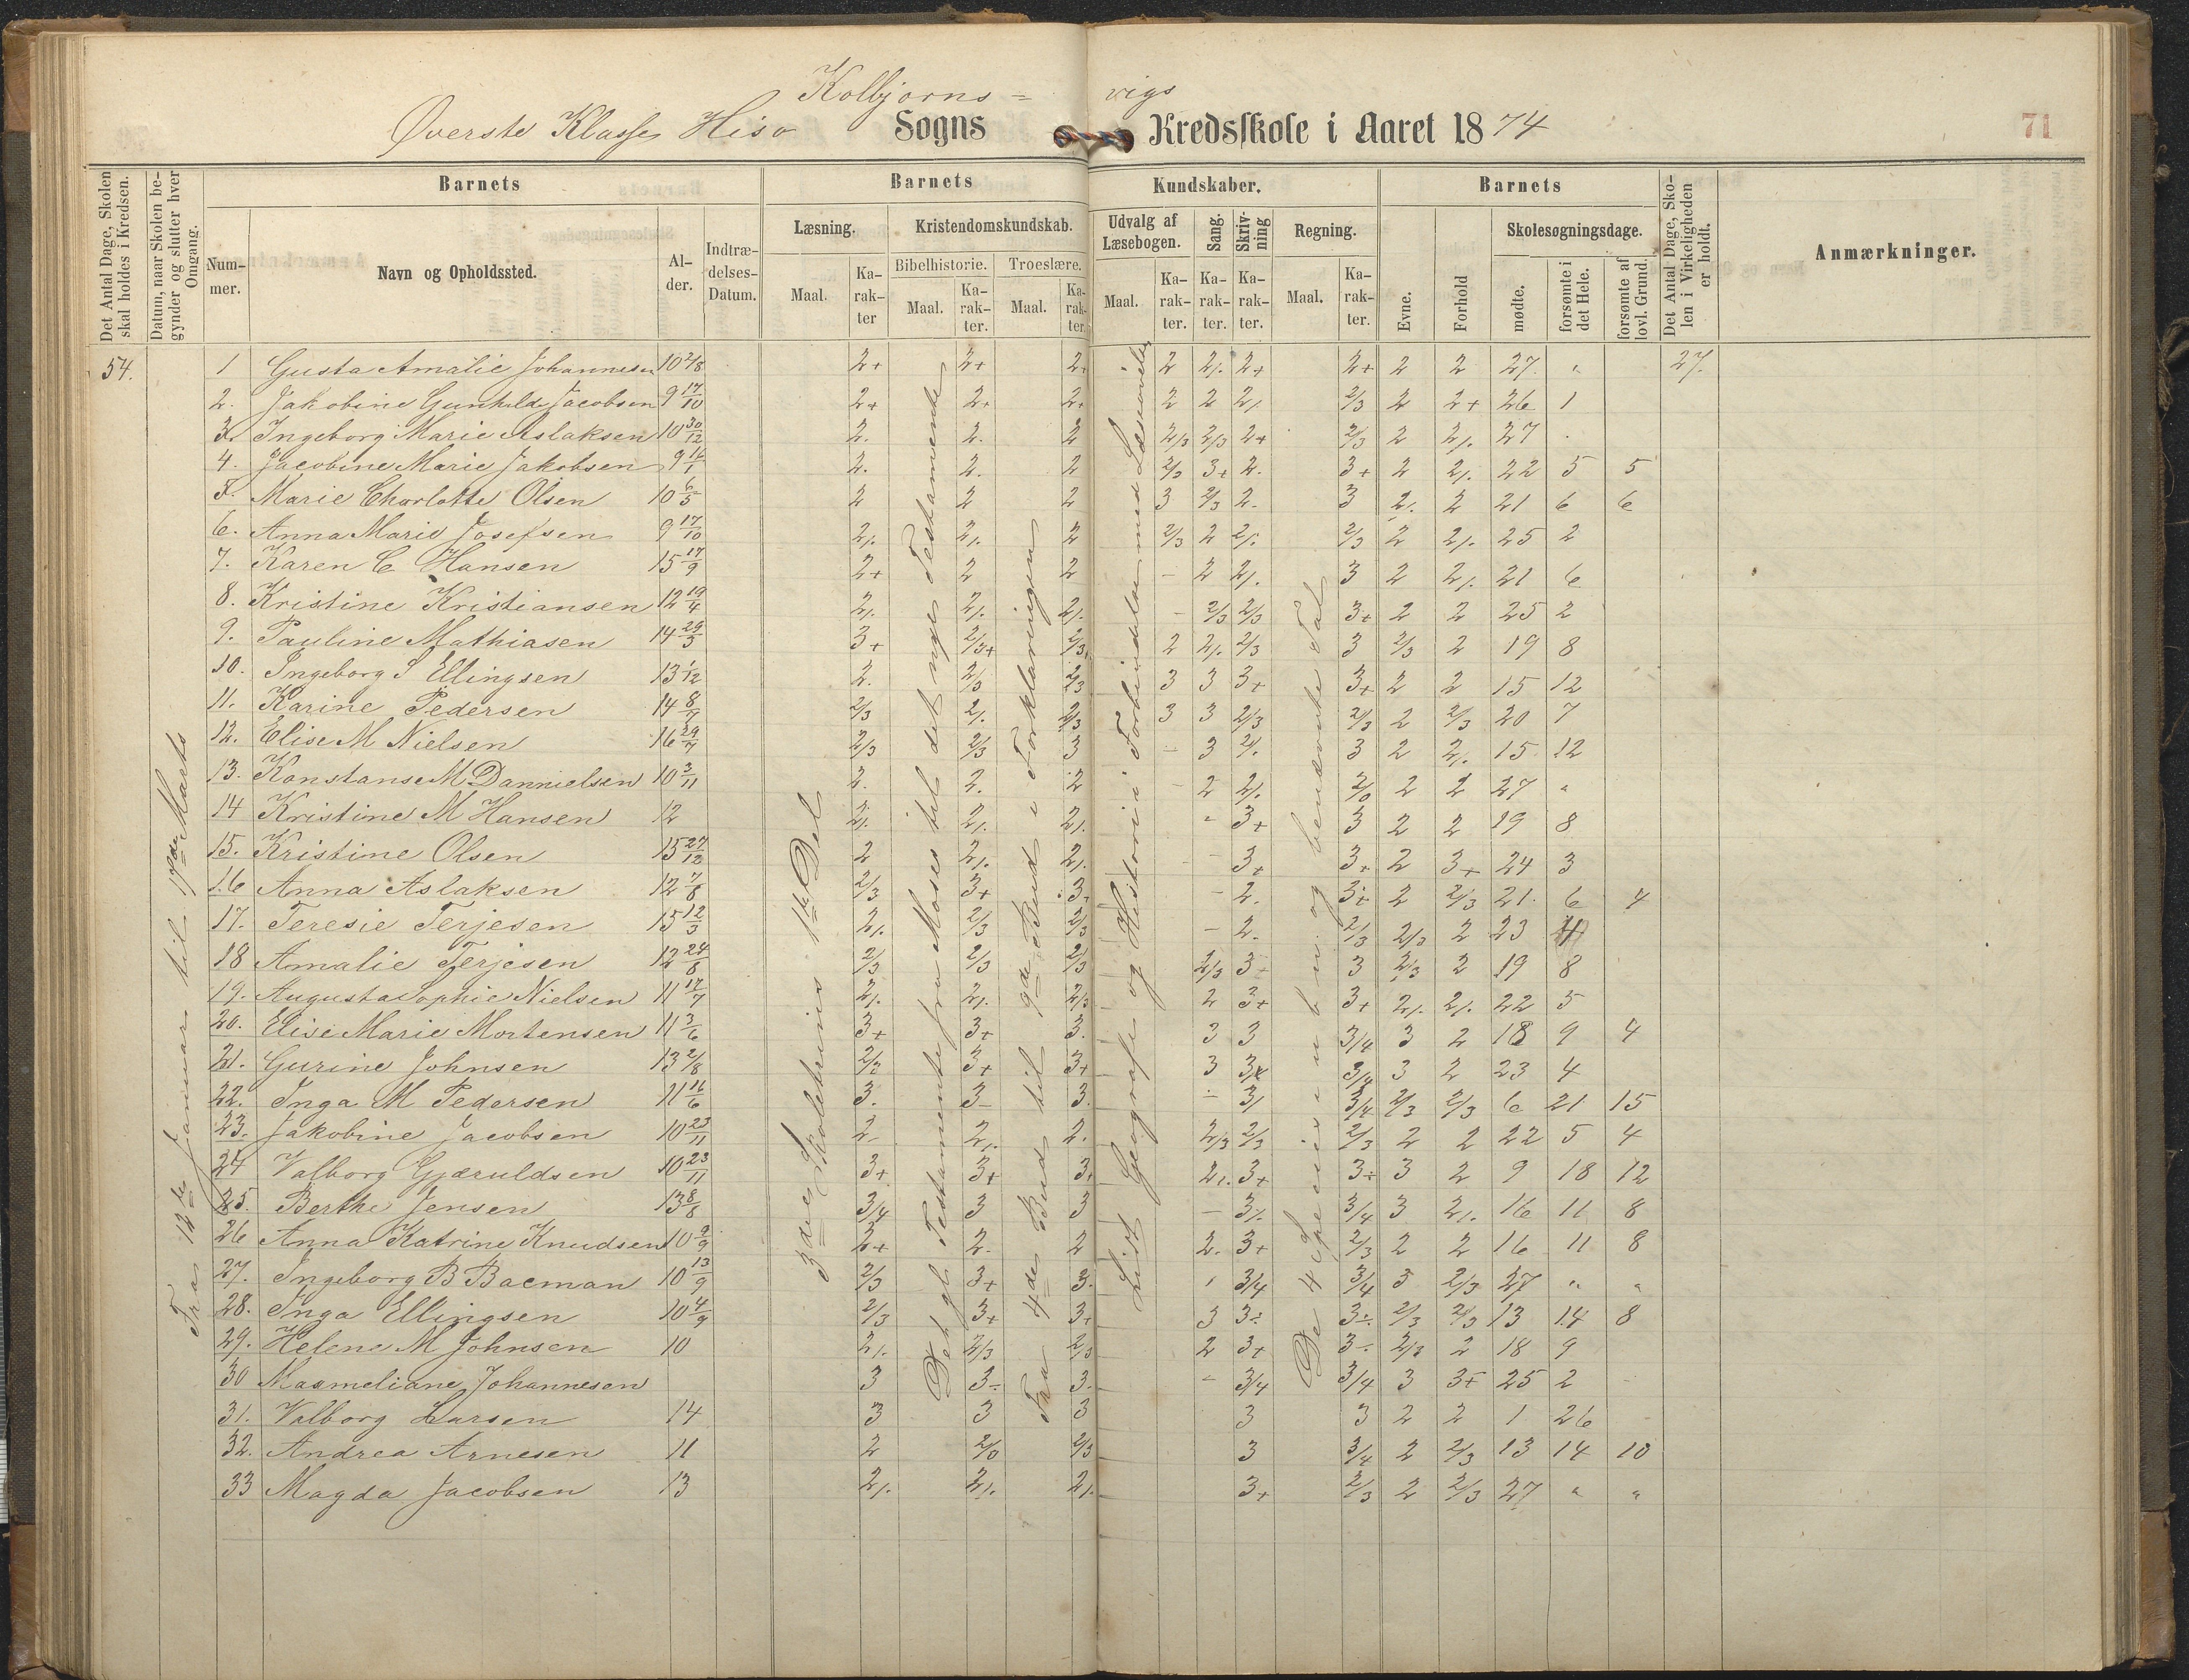 Kolbjorns= vigs
Øverste Klasse Hisø Sogns Kredsskole i Aaret 1874
71
Det Antal Dage, Skolen skal holdes i Kredsen.
Datum, naar Skolen begynder og slutter hver Omgang.
Barnets
Barnets
Kundskaber.
Barnets
Det Antal Dage, Skolen i Virkeligheden er holdt.
Anmærkninger.
Nummer.
Navn og Opholdssted.
Alder.
Indtrædelses-Datum.
Læsning.
Kristendomskundskab.
Udvalg af Læsebogen.
Sang.
Skrivning
Regning.
Evne.
Forhold
Skolesøgningsdage.
Bibelhistorie.
Troeslære.
Maal.
Karakter
Maal.
Karakter.
Maal.
Karakter.
Maal.
Karakter.
Karakter.
Karakter.
Maal.
Karakter.
mødte.
forsømte i det Hele.
forsømte af lovl. Grund.
54.
Fra 12de Januar til 17de Marts
3die Skoletrins 1ste Del
Det gl. Testamente fra Moses til det nye Testamente
Fra 4des Bud til 9de Bud i Forklaringen
Lidt Geografi og Historie i Forbindelse med Læseøvelse
De 4 Specier i ubn. og benævnte Tal
1 Gusta Amalie Johannesen 10 2/8 2+ 2+ 2+ 2 2/. 2+ 2+ 2 2 27. " 27.
2. Jakobine Gunhilde Jacobsen 9 17/10 2+ 2+ 2+ 2 2 2/. 2/3 2 2+ 26 1
3. Ingeborg Marie Aslaksen 10 30/12 2. 2. 2 2/3 2/3 2+ 2/3 2 2/. 27 .
4. Jacobine Marie Jakobsen 9 16/1 2. 2. 2 2/3 3+ 2. 3+ 2 2/. 22 5 5
5. Marie Charlotte Olsen 10 6/5 2 2 2 3 2/3 2. 3 2/. 2 21 6 6
6. Anna Marie Josefsen 9 17/10 2/. 2/. 2 2/3 2 2/. 2/3 2 2/. 25 2
7. Karen C Hansen 15 17/9 2+ 2 2 - 2 2/. 3 2 2/. 21 6
8. Kristine Kristiansen 12 19/4 2/. 2/. 2/. - 2/3 2/3 3+ 2 2 25 2
9. Pauline Mathiasen 14 29/3 3+ 2/3+ 2/3+ 2 2/. 2/3 3 2/3 2 19 8
10. Ingeborg S Ellingsen 13 1/12 2. 2/3 2/3 3 3 3+ 3+ 2 2 15 12
11. Karine Pedersen 14 8/7 2/3 2/. 2/3 3 3 2/3 2/3 2 2/3 20 7
12. Elise M Nielsen 16 29/7 2/3 2/3 3 - 3 2/. 3 2 2/. 15 12
13. Konstanse M Dannielsen 10 3/11 2. 2. 2 - 2 2/. 2/0 2 2 27 "
14 Kristine M Hansen 12 2/. 2/. 2/. - 3+ 3 2 2 19 8
15. Kristine Olsen 15 27/12 2 2/. 2/. - 3+ 3+ 2 3+ 24 3
16 Anna Aslaksen 12 7/8 2/3 3+ 3+ - 2. 3+ 2 2/3 21. 6 4
17. Teresie Terjesen 15 12/3 2/. 2/3 2/3 - 2. 2/3 2/3 2 23 4
18 Amalie Terjesen 12 24/8 2/3 2/3 2/3 2/3 3+ 3 2/3 2 19 8
19. Augusta Sophie Nielsen 11 17/7 2/. 2/. 2/3 2 3+ 3+ 2/. 2/. 22 5
20. Elise Marie Mortensen 11 3/6 3+ 3+ 3. 3 3 3/4 3 2 18 9 4
21. Gurine Johnsen 13 2/8 2/3 3+ 3+ 3 3+ 3/4 3 2 23 4
22. Inga M Pedersen 11 16/6 3. 3- 3. - 3/ 3/4 2/3 2/3 6 21 15
23. Jakobine Jacobsen 10 23/11 2. 2/. 2. 2/3 2/3 2/3 2 2 22 5 4
24 Valborg Gjæruldsen 10 23/11 3+ 3+ 3+ 2/. 3+ 3÷ 3 2 9 18 12
25. Berthe Jensen 13 8/8 3/4 3 3 - 3/. 3/4 3 2/. 16 11 8
26 Anna Katrine Knudsen 10 9/9 2+ 2. 2 2. 3+ 2/3 2 2 16 11 8
27. Ingeborg B Bacman 10 13/9 2/3 3+ 3. 3/4 3/4 3 2/3 27 " "
28. Inga Ellingsen 10 4/9 2/3 3+ 3+ 3 3÷ 3÷ 2/3 2/3 13 14 8
29. Helene M Johnsen 10 2/. 2/3 2/3 2 3+ 3÷ 2/3 2 18 9
30 Maxmeliane Johannesen 3 3÷ 3. - 3/4 3/4 3 3+ 25 2
31. Valborg Larsen 14 3 3 3 3 3 2 2 1 26
32. Andrea Arnesen 11 2 2/0 2/3 3 3/4 2 2/3 13 14 10
33 Magda Jacobsen 13 2/. 2/. 2/. 3+ 2/3 2 2/3 27 " "